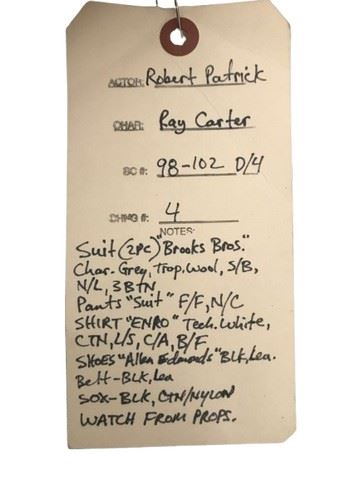 ACTOR: Robert Patrick
CHAR: Ray Carter
SC #: 98-102 D/4
CHNG #: 4
NOTES:
Suit (2PC) "Brooks Bros."
Char. Grey, Trop. Wool, S/B,
N/L, 3BTN
Pants "Suit" F/F, N/C
SHIRT "ENRO" Tech. White,
CTN, L/S, C/A, B/F
SHOES "Allen Edmonds" BLK, Lea.
Belt-BLK, Lea
SOX-BLK, CTN/NYLON
WATCH FROM PROPS.